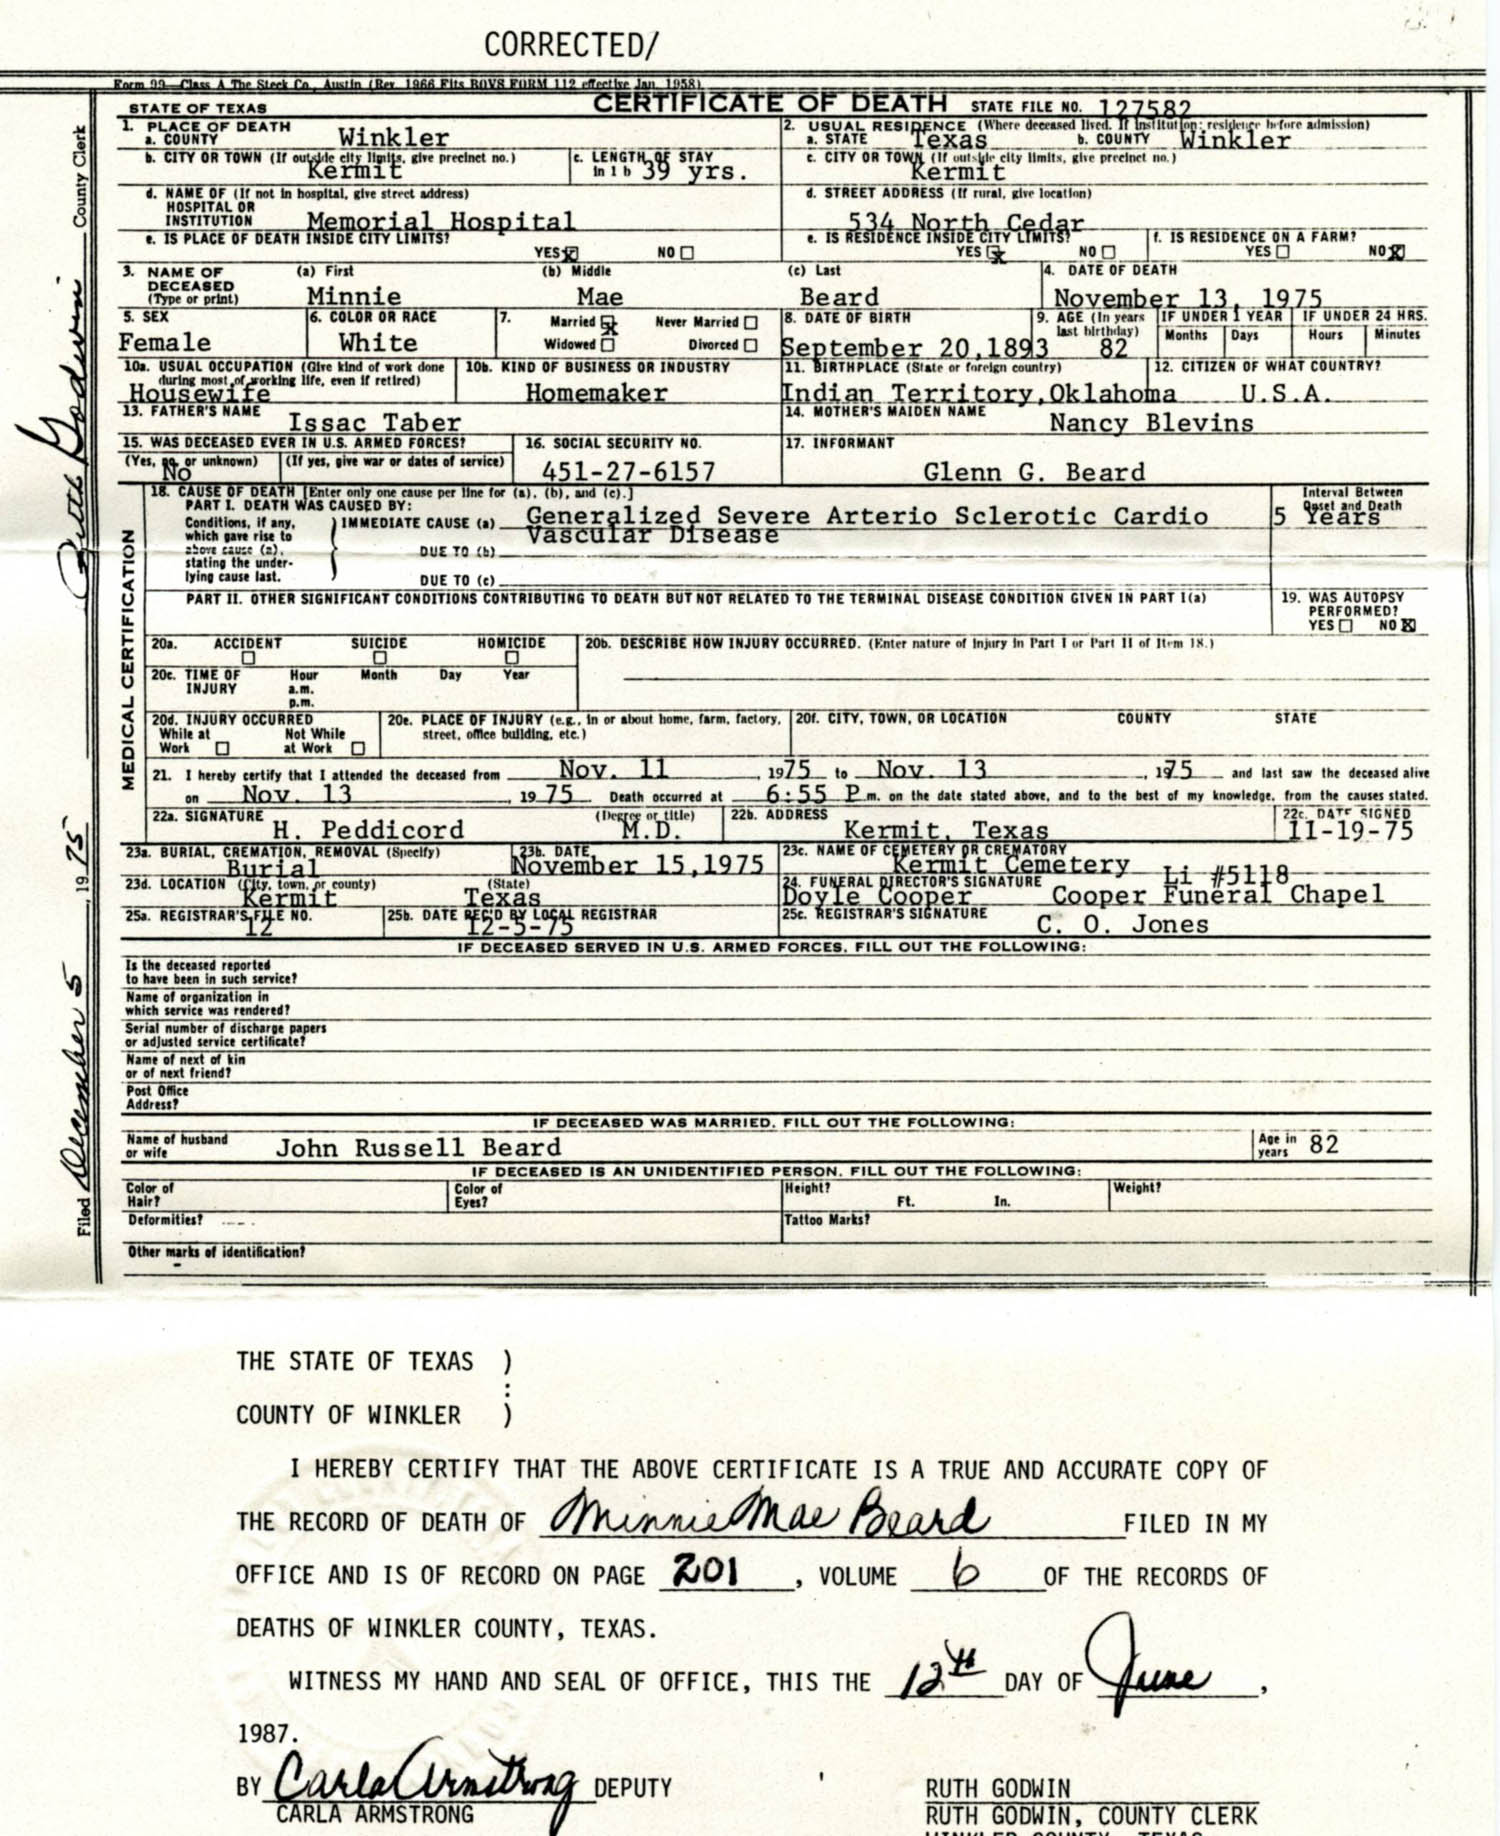 CORRECTED/
Form 99—Class A The Steck Co., Austin (Rev. 1966 Fits BOVS FORM 112 effective Jan. 1958)
STATE OF TEXAS CERTIFICATE OF DEATH STATE FILE NO. 127582
1. PLACE OF DEATH
a. COUNTY Winkler
2. USUAL RESIDENCE (Where deceased lived. If institution: residence before admission)
a. STATE Texas b. COUNTY Winkler
b. CITY OR TOWN (If outside city limits, give precinct no.)
Kermit
c. LENGTH OF STAY
in 1 b 39 yrs.
c. CITY OR TOWN (If outside city limits, give precinct no.)
Kermit
d. NAME OF (If not in hospital, give street address)
HOSPITAL OR
INSTITUTION Memorial Hospital
d. STREET ADDRESS (If rural, give location)
534 North Cedar
e. IS PLACE OF DEATH INSIDE CITY LIMITS?
YES x NO
e. IS RESIDENCE INSIDE CITY LIMITS?
YES x NO
f. IS RESIDENCE ON A FARM?
YES NO x
3. NAME OF DECEASED (Type or print)
(a) First (b) Middle (c) Last
Minnie Mae Beard
4. DATE OF DEATH
November 13, 1975
5. SEX
Female
6. COLOR OR RACE
White
7. Married x Never Married
Widowed Divorced
8. DATE OF BIRTH
September 20,1893
9. AGE (In years
last birthday)
82
IF UNDER 1 YEAR IF UNDER 24 HRS.
Months Days Hours Minutes
10a. USUAL OCCUPATION (Give kind of work done
during most of working life, even if retired)
Housewife
10b. KIND OF BUSINESS OR INDUSTRY
Homemaker
11. BIRTHPLACE (State or foreign country)
Indian Territory,Oklahoma
12. CITIZEN OF WHAT COUNTRY?
U.S.A.
13. FATHER'S NAME
Issac Taber
14. MOTHER'S MAIDEN NAME
Nancy Blevins
15. WAS DECEASED EVER IN U.S. ARMED FORCES?
(Yes, no, or unknown) (If yes, give war or dates of service)
No
16. SOCIAL SECURITY NO.
451-27-6157
17. INFORMANT
Glenn G. Beard
MEDICAL CERTIFICATION
18. CAUSE OF DEATH [Enter only one cause per line for (a), (b), and (c).]
PART I. DEATH WAS CAUSED BY:
Interval Between
Onset and Death
IMMEDIATE CAUSE (a) Generalized Severe Arterio Sclerotic Cardio 5 Years
Vascular Disease
Conditions, if any,
which gave rise to
above cause (a),
stating the under-
lying cause last.
DUE TO (b)
DUE TO (c)
PART II. OTHER SIGNIFICANT CONDITIONS CONTRIBUTING TO DEATH BUT NOT RELATED TO THE TERMINAL DISEASE CONDITION GIVEN IN PART I(a)
19. WAS AUTOPSY
PERFORMED?
YES NO x
20a. ACCIDENT SUICIDE HOMICIDE
20b. DESCRIBE HOW INJURY OCCURRED. (Enter nature of injury in Part I or Part II of Item 18.)
20c. TIME OF INJURY Hour Month Day Year
a.m.
p.m.
20d. INJURY OCCURRED
While at Work Not While at Work
20e. PLACE OF INJURY (e.g., in or about home, farm, factory,
street, office building, etc.)
20f. CITY, TOWN, OR LOCATION COUNTY STATE
21. I hereby certify that I attended the deceased from Nov. 11, 1975 to Nov. 13, 1975 and last saw the deceased alive
on Nov. 13, 1975 Death occurred at 6:55 P.m. on the date stated above, and to the best of my knowledge, from the causes stated.
22a. SIGNATURE (Degree or title)
H. Peddicord M.D.
22b. ADDRESS
Kermit, Texas
22c. DATE SIGNED
11-19-75
23a. BURIAL, CREMATION, REMOVAL (Specify)
Burial
23b. DATE
November 15,1975
23c. NAME OF CEMETERY OR CREMATORY
Kermit Cemetery
23d. LOCATION (City, town, or county) (State)
Kermit Texas
24. FUNERAL DIRECTOR'S SIGNATURE Li #5118
Doyle Cooper Cooper Funeral Chapel
25a. REGISTRAR'S FILE NO.
12
25b. DATE REC'D BY LOCAL REGISTRAR
12-5-75
25c. REGISTRAR'S SIGNATURE
C. O. Jones
IF DECEASED SERVED IN U.S. ARMED FORCES, FILL OUT THE FOLLOWING:
Is the deceased reported
to have been in such service?
Name of organization in
which service was rendered?
Serial number of discharge papers
or adjusted service certificate?
Name of next of kin
or of next friend?
Post Office
Address?
IF DECEASED WAS MARRIED, FILL OUT THE FOLLOWING:
Name of husband
or wife John Russell Beard
Age in
years 82
IF DECEASED IS AN UNIDENTIFIED PERSON, FILL OUT THE FOLLOWING:
Color of
Hair?
Color of
Eyes?
Height? Ft. In.
Weight?
Deformities?
Tattoo Marks?
Other marks of identification?
Filed December 5, 1975 Ruth Godwin County Clerk
THE STATE OF TEXAS )
:
COUNTY OF WINKLER )
I HEREBY CERTIFY THAT THE ABOVE CERTIFICATE IS A TRUE AND ACCURATE COPY OF
THE RECORD OF DEATH OF Minnie Mae Beard FILED IN MY
OFFICE AND IS OF RECORD ON PAGE 201, VOLUME 6 OF THE RECORDS OF
DEATHS OF WINKLER COUNTY, TEXAS.
WITNESS MY HAND AND SEAL OF OFFICE, THIS THE 12th DAY OF June,
1987.
BY Carla Armstrong DEPUTY
CARLA ARMSTRONG
RUTH GODWIN
RUTH GODWIN, COUNTY CLERK
WINKLER COUNTY, TEXAS